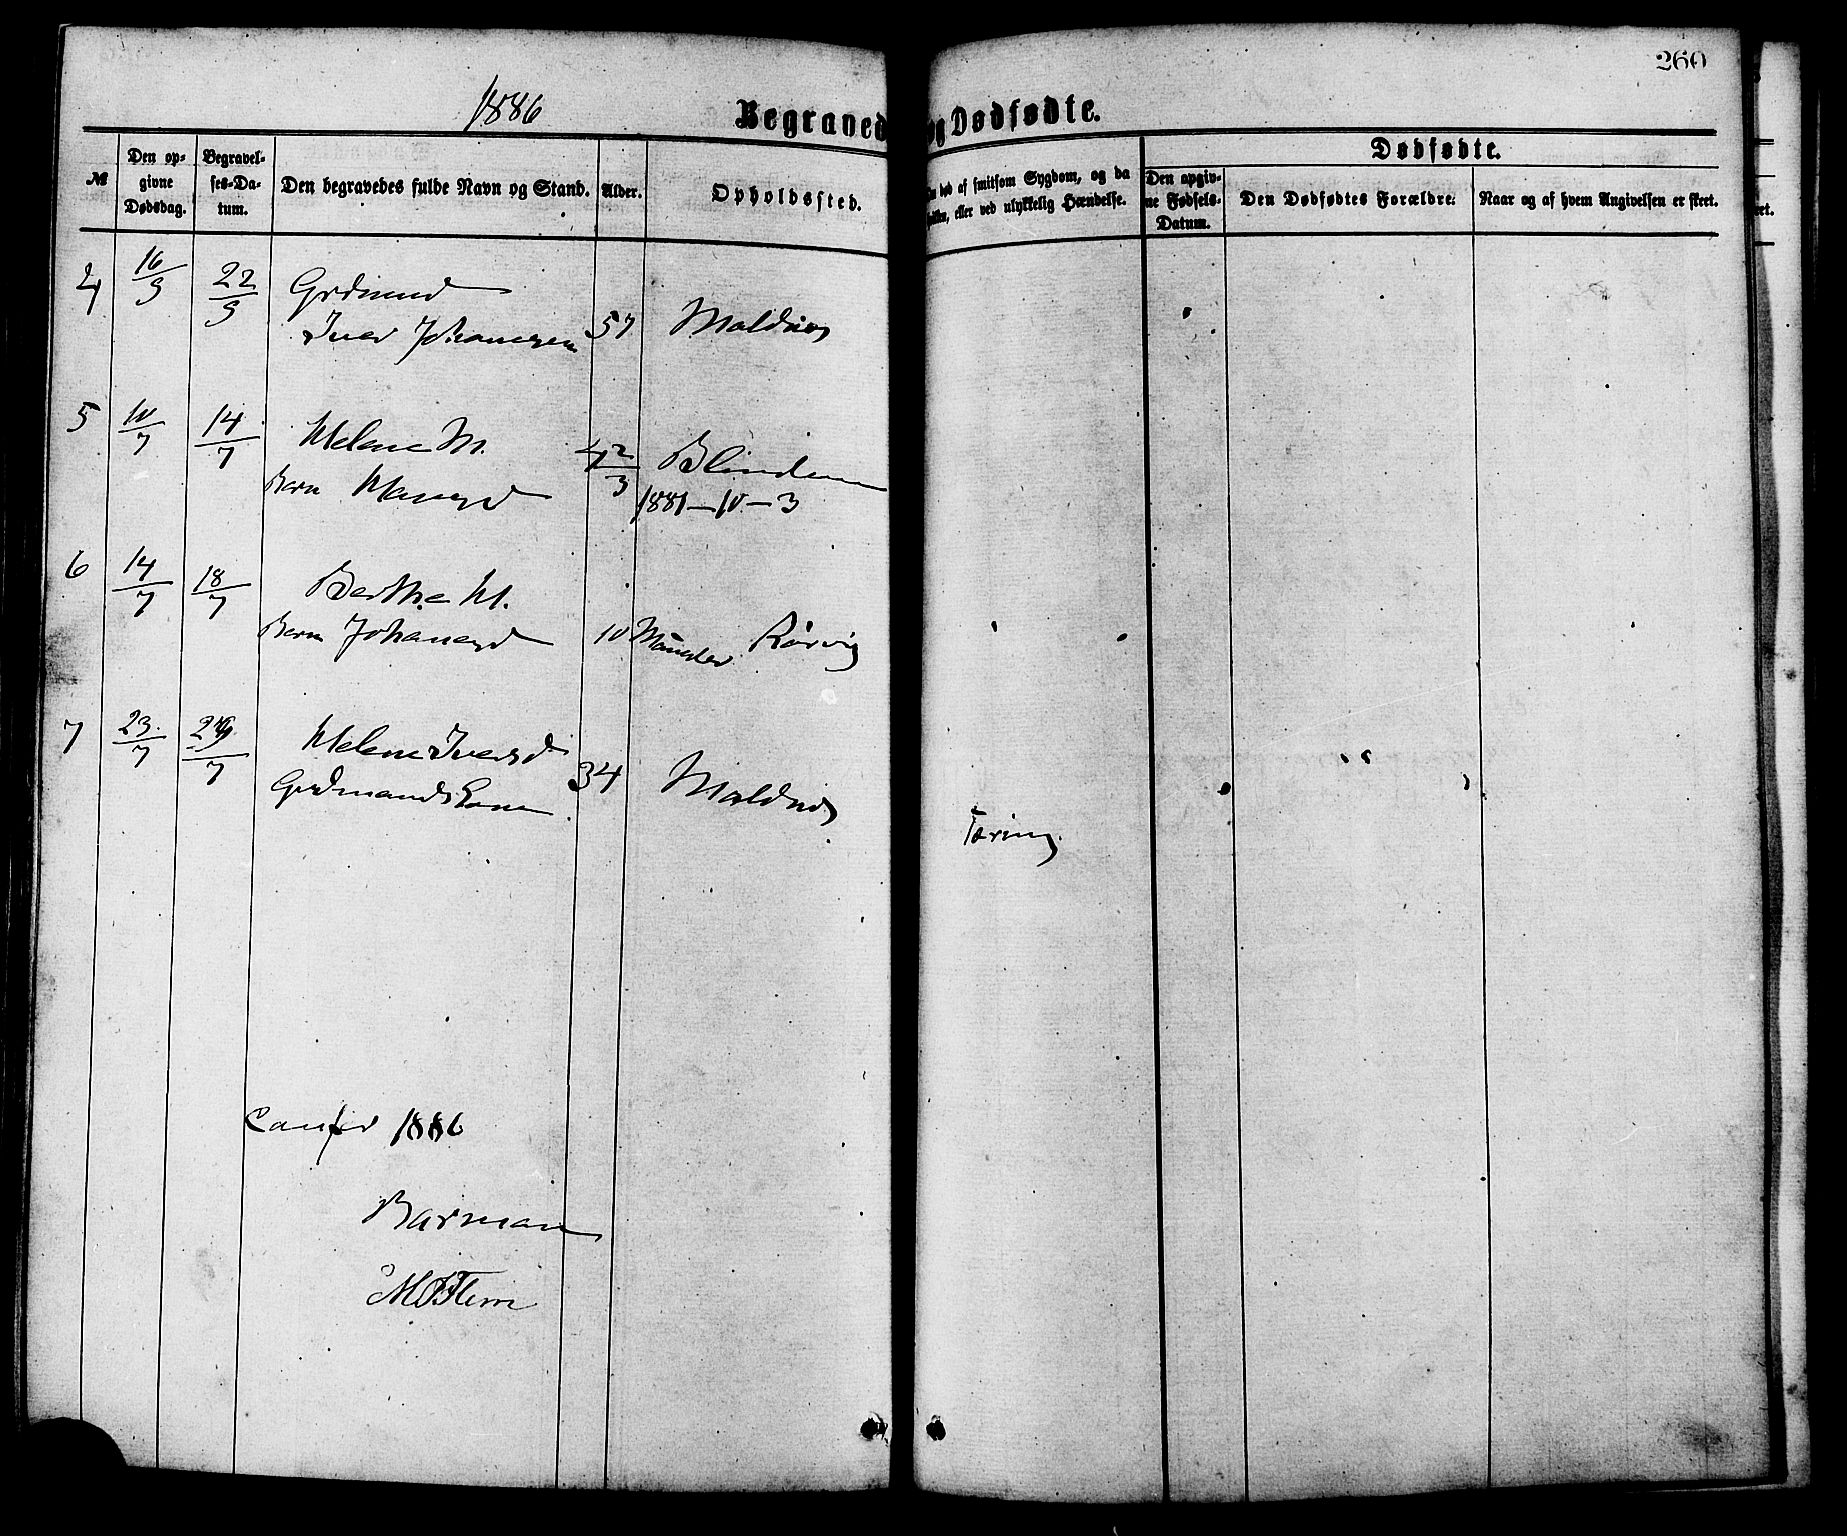 260
1886
Begraved og Dødfødte.
№
Den op-
givne
Dødsdag.
Begravel-
ses-Da-
tum.
Den begravedes fulde Navn og Stand.
Alder.
Opholdssted.
død af smitsom Sygdom, og da
eller ved ulykkelig Hændelse.
Dødfødte.
Den opgiv-
ne Fødsels-
Datum.
Den Dødfødtes Forældre.
Naar og af hvem Angivelsen er skeet.
4 16/5 22/5 Grdmand
Iver Johansen 57 Maldnes
5 10/7 14/7 Helene M.
Barn Hansd 4 2/3 Blindem
1881-10-3
6 14/7 18/7 Berthe M.
Barn Johansd 10 Maaneder Rørvig
7 23/7 29/7 Helene Iversd
Grdmands Kone 34 Maldnes
Tæring.
Confer 1886
Barman